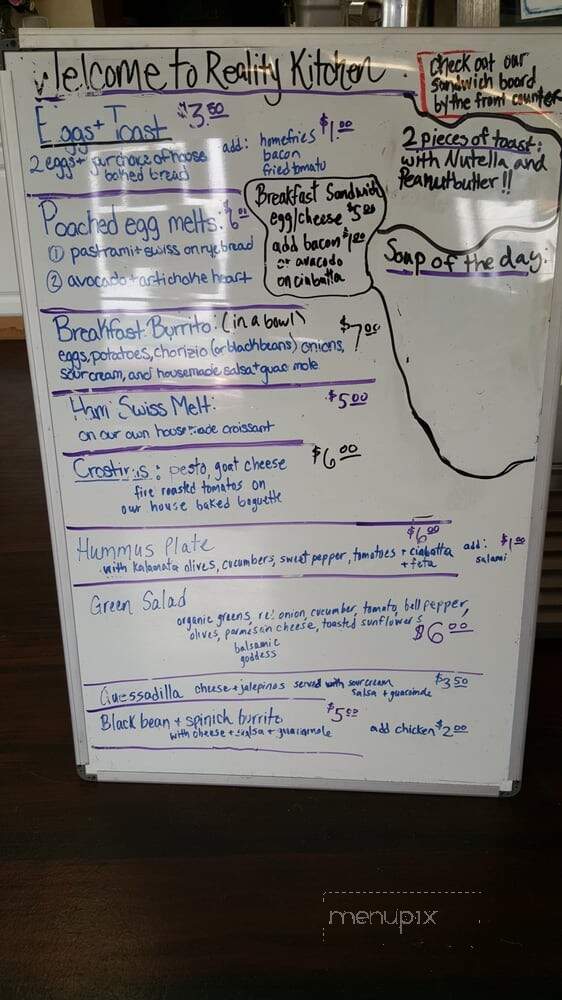 Welcome to Reality Kitchen
check out our
sandwich board
by the front counter
Eggs + Toast $3.50
2 eggs + your choice of house
baked bread
add: homefries $1.00
bacon
fried tomato
2 pieces of toast:
with Nutella and
Peanutbutter!!
Breakfast Sandwich
egg/cheese $5.00
add bacon $1.00
or avacado
on ciabatta
Poached egg melts: $6.00
① pastrami + swiss on rye bread
② avocado + artichohe heart
Soup of the day:
Breakfast Burrito: (in a bowl) $7.00
eggs, potatoes, chorizio (or blachbeans) onions,
sour cream, and housemade salsa + guac mole
Ham Swiss Melt: $5.00
on our own house made croissant
Crostinis: pesto, goat cheese $6.00
fire roasted tomatos on
our house baked baguette
Hummus Plate $6.00
with kalamata olives, cucumbers, sweet pepper, tomatoes + ciabatta
+ feta
add: $1.00
salami
Green Salad
organic greens, red onion, cucumber, tomato, bell pepper,
olives, parmesan cheese, toasted sunflowers $6.00
balsamic
goddess
Quessadilla cheese + jalepinos served with sour cream $3.50
salsa + guacamole
Black bean + spinich burrito $5.00
with cheese + salsa + guacamole
add chicken $2.00
menupix